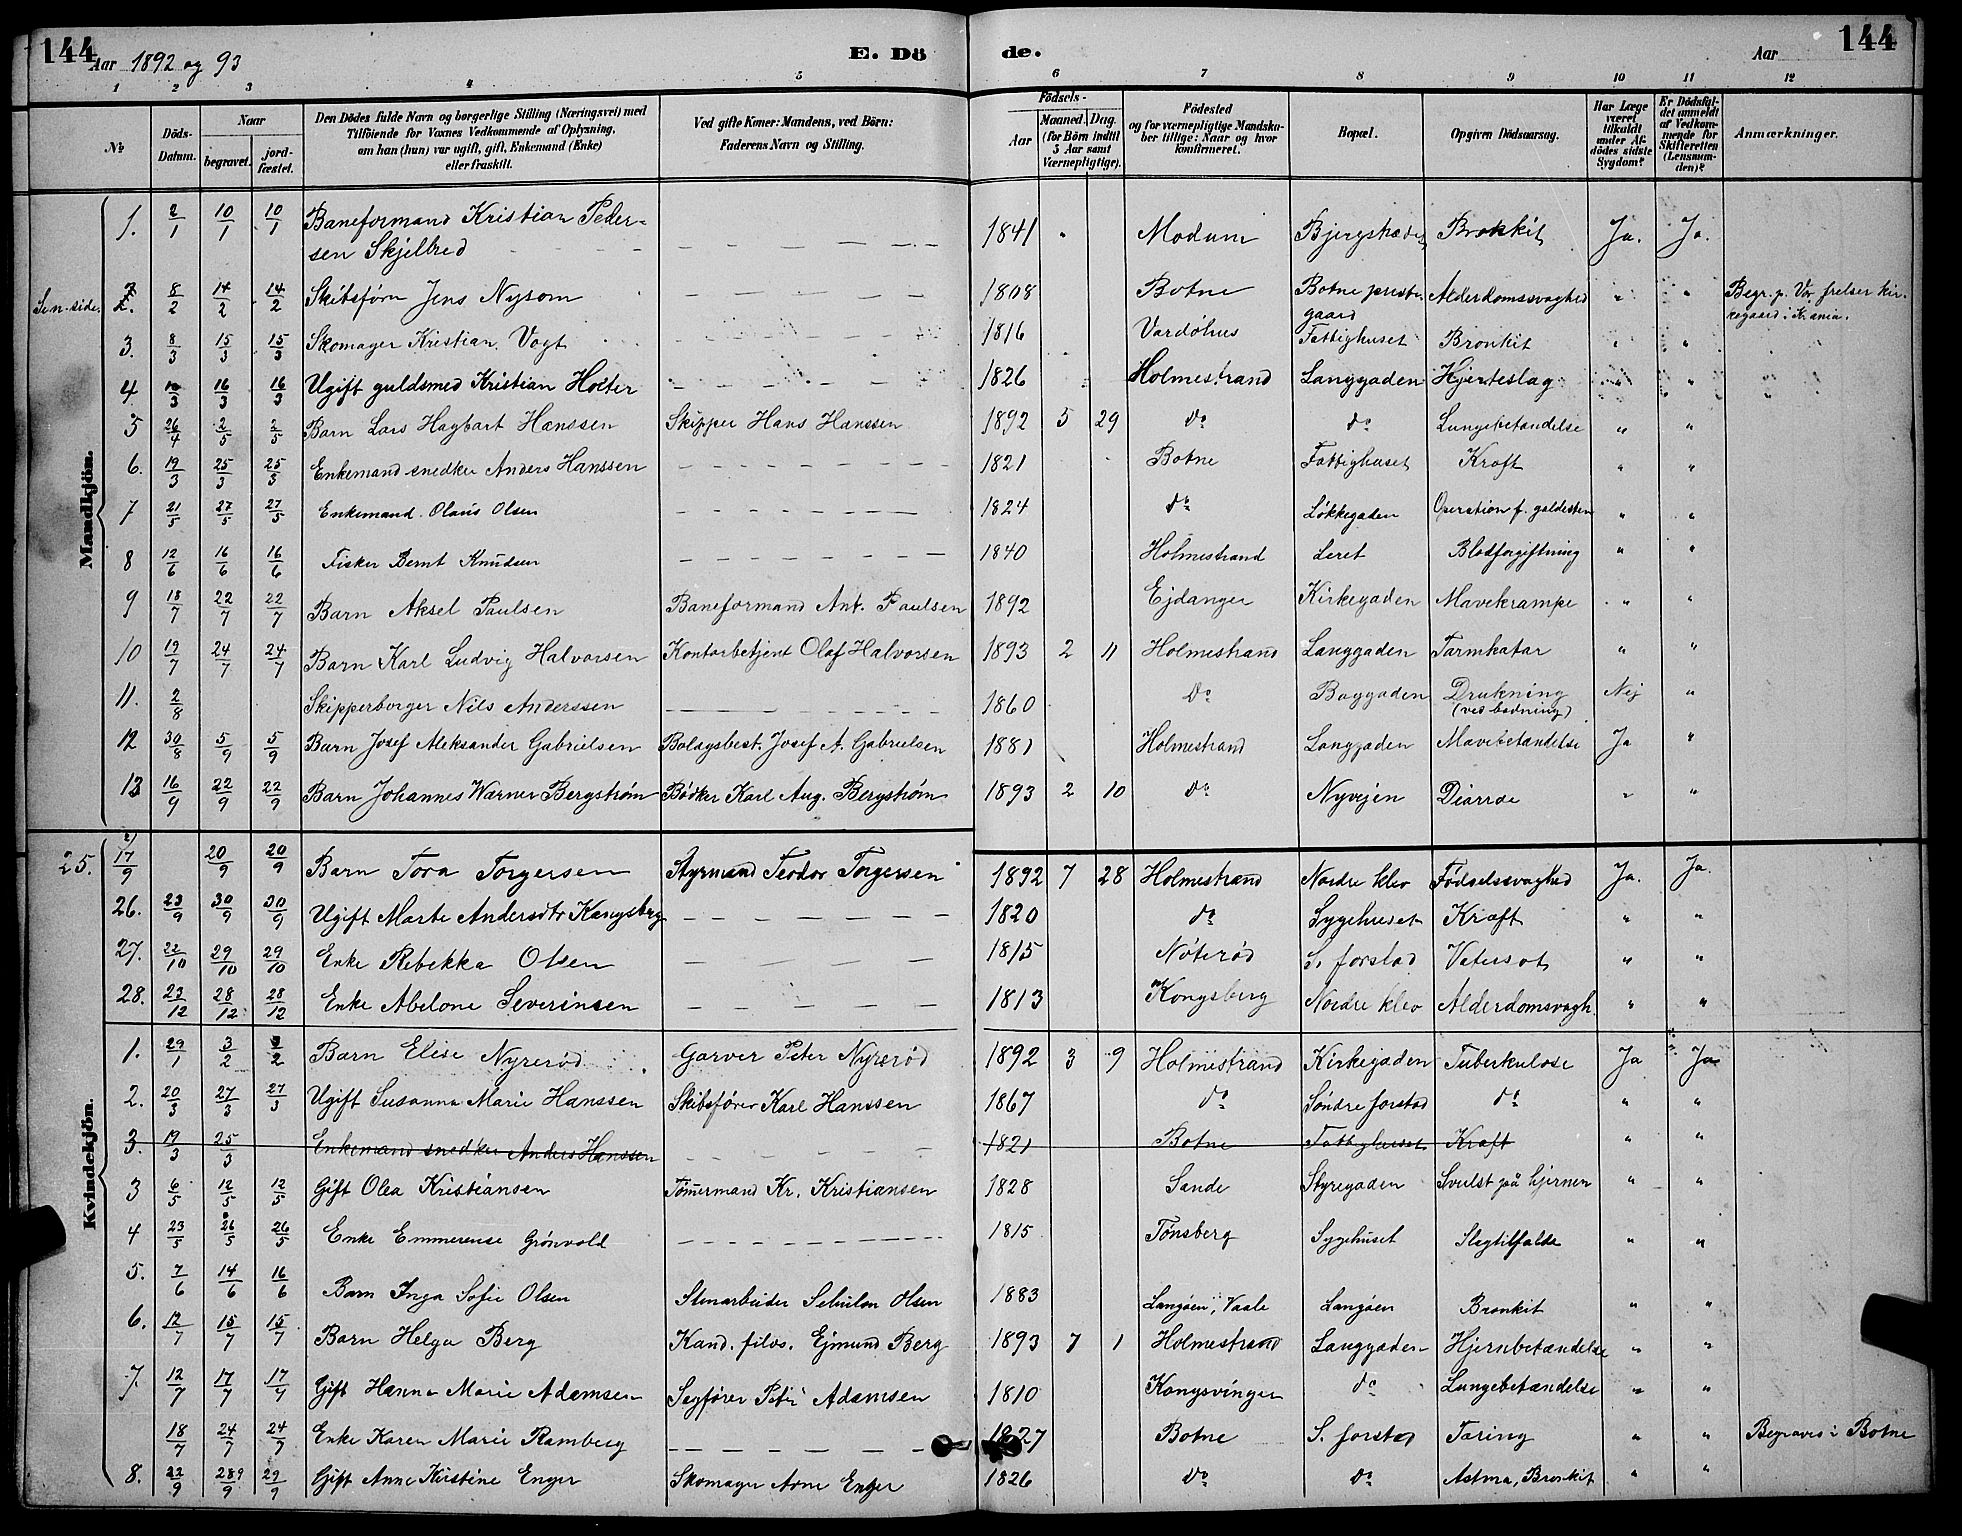 144 Aar 1892 og 93 E. Döde. Aar 144
1 2 3 4 5 6 7 8 9 10 11 12
No
Döds-Datum.
Naar
begravet.
jordfæstet.
Den Dödes fulde Navn og borgerlige Stilling (Næringsvei) med
Tilföiende for Voxnes Vedkommende af Oplysning,
om han (hun) var ugift, gift, Enkemand (Enke)
eller fraskilt.
Ved gifte Koner: Mandens, ved Börn:
Faderens Navn og Stilling.
Födsels-
Aar
Maaned. Dag.
(for Börn indtil
5 Aar samt
Værnepligtige).
Födested
og for værnepligtige Mandska-
ber tillige: Naar og hvor
konfirmeret.
Bopæl.
Opgiven Dödsaarsag.
Har Læge
været
tilkaldt
under Af-
dödes sidste
Sygdom?
Er Dödsfal-
det anmeldt
af Vedkom-
mende for
Skifteretten
(Lensman-
den)?
Anmærkninger.
Mandkjön.
1. 2/1 10/1 10/1 Baneformand Kristian Peder-
sen Skjelbred 1841 Modum Bjergstræde Bronkit Ja. Ja.
2. 8/2 14/2 14/2 Skibsförn Jens Nysom 1808 Botne Botne preste-
gaard Alderdomssvaghed " " Begr. p. Vor frelser kir-
kegaard i Kr.ania.
3. 8/3 15/3 15/3 Skomager Kristian Vogt 1816 Vardöhus Fattighuset Bronkit " "
4 /3 16/3 16/3 Ugift guldsmed Kristian Holter 1826 Holmestrand Langgaden Hjerteslag " "
5 26/4 2/5 2/5 Barn Lars Hagbart Hanssen Skipper Hans Hanssen 1892 5 29 do do Lungebetændelse " "
6. 19/3 25/3 25/3 Enkemand snedker Anders Hanssen 1821 Botne Fattighuset Kræft " "
7 21/5 27/5 27/5 Enkemand Olaus Olsen 1824 do Løkkegaden Operation f. galdesten " "
8 12/6 16/6 16/6 Fisker Bernt Knudsen 1840 Holmestrand Leret Blodforgiftning " "
9 18/7 22/7 22/7 Barn Aksel Paulsen Baneformand Ant. Paulsen 1892 Ejdanger Kirkegaden Mavekrampe " "
10 19/7 24/7 24/7 Barn Karl Ludvig Halvorsen Kontorbetjent Olaf Halvorsen 1893 2 11 Holmestrand Langgaden Tarmkatar " "
11. 2/8 Skipperborger Nils Anderssen 1860 do Baggaden Drukning
(ved badning) Nej "
12 30/8 5/9 5/9 Barn Josef Aleksander Gabrielsen Bolagsbest. Josef A. Gabrielsen 1881 Holmestrand Langgaden Mavebetændelse Ja "
13 16/9 22/9 22/9 Barn Johannes Warner Bergstrøm Bødker Karl Aug. Bergstrøm 1893 2 10 do Nyvejen Diarrøe " "
Kvindekjön.
25. 17/9 20/9 20/9 Barn Tora Torgersen Styrmand Teodor Torgersen 1892 7 28 Holmestrand Nordre klev Fødselssvaghed Ja. Ja.
26. 23/9 30/9 30/9 Ugift Marte Andersdtr Kongsberg 1820 do Sygehuset Kræft " "
27. 22/10 29/10 29/10 Enke Rebekka Olsen 1815 Nøterø S. forstad Vatersot " "
28. 23/12 28/12 28/12 Enke Abelone Severinsen 1813 Kongsberg Nordre klev Alderdomsvagh. " "
1. 29/1 3/2 3/2 Barn Elise Nyrerød Garver Peter Nyrerød 1892 3 9 Holmestrand Kirkegaden Tuberkulose Ja Ja
2. 20/3 27/3 27/3 Ugift Susanna Marie Hanssen Skibsfører Karl Hanssen 1867 do Søndre forstad do " "
3. 19/3 25/3 Enkemand snedker Anders Hanssen 1821 Botne Fattighuset Kræft " "
3 6/5 12/5 12/5 Gift Olea Kristiansen Tømmermand Kr. Kristiansen 1828 Sande Styregaden Svulst paa hjernen " "
4 23/5 26/5 26/5 Enke Emmerense Grønvold 1815 Tønsberg Sygehuset Slagtilfælde " "
5. 7/6 14/6 16/6 Barn Inga Sofie Olsen Stenarbeider Olsen 1883 Langøen, Vaale Langøen Bronkit " "
6. 12/7 15/7 15/7 Barn Helga Berg Kand. filos. Ejmund Berg 1893 7 1 Holmestrand Langgaden Hjernebetændelse " "
7. 12/7 17/7 17/7 Gift Hanna Marie Adamsen Sagfører Petr Adamsen 1810 Kongsvinger do Lungebetændelse " "
18/7 24/7 24/7 Enke Karen Marie Ramberg 1827 Botne S. forstad Tæring " " Begraves i Botne
8. 22/9 28/9 29/9 Gift Anne Kirstine Enger Skomager Arne Enger 1826 do do Astma, Bronkit " "